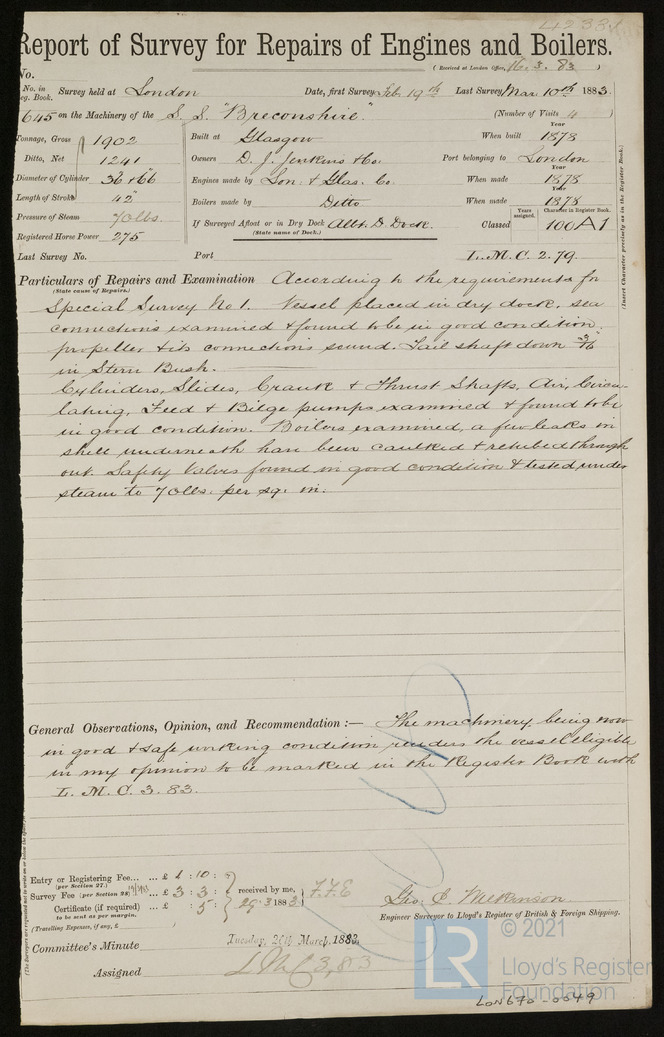 42331
Report of Survey for Repairs of Engines and Boilers.
(Received at London Office, 16. 3. 83)
No.
No. in Reg. Book. Survey held at London Date, first Survey Feb 19th Last Survey Mar 10th 1883.
645 on the Machinery of the S. S. "Breconshire." (Number of Visits 4 )
Tonnage, Gross 1902 Built at Glasgow When built Year 1878
Ditto, Net 1241 Owners D. J. Jenkins & Co. Port belonging to London
Diameter of Cylinder 36 & 66 Engines made by Lon. & Glas. Co. When made Year 1878
Length of Stroke 42" Boilers made by Ditto When made Year 1878
Pressure of Steam 70 lbs. If Surveyed Afloat or in Dry Dock Albt. D. Dock. Classed Years assigned. Character in Register Book. 100 A 1
(State name of Dock.)
Registered Horse Power 275
Last Survey No. Port L. M. C. 2. 79.
(Insert Character precisely as in the Register Book.)
Particulars of Repairs and Examination According to the requirements for
(State cause of Repairs.)
Special Survey No 1. Vessel placed in dry dock, sea
connections examined & found to be in good condition,
propeller & its connections sound. Tail shaft down 3/16"
in Stern Bush.
Cylinders, Slides, Crank & Thrust Shafts, Air, Circu-
lating, Feed & Bilge pumps examined & found to be
in good condition. Boilers examined, a few leaks in
shell underneath have been caulked & retubed through
out. Safety Valves found in good condition & tested under
steam to 70 lbs. per sq. in.
General Observations, Opinion, and Recommendation :— The machinery being now
in good & safe working condition renders the vessel eligible
in my opinion to be marked in the Register Book with
L. M. C. 3. 83.
Entry or Registering Fee... ... £ 1 : 10 :
(per Section 27.)
Survey Fee (per Section 28) ... £ 3 : 3 : received by me,
Certificate (if required) ... £ : 5 : 29. 3 1883
to be sent as per margin.
(Travelling Expenses, if any, £ )
Geo. C. Wilkinson
Engineer Surveyor to Lloyd's Register of British & Foreign Shipping.
Committee's Minute Tuesday, 20th March, 1883.
Assigned L M C 3, 83
© 2021
LR
Lloyd's Register
Foundation
LON670-0049